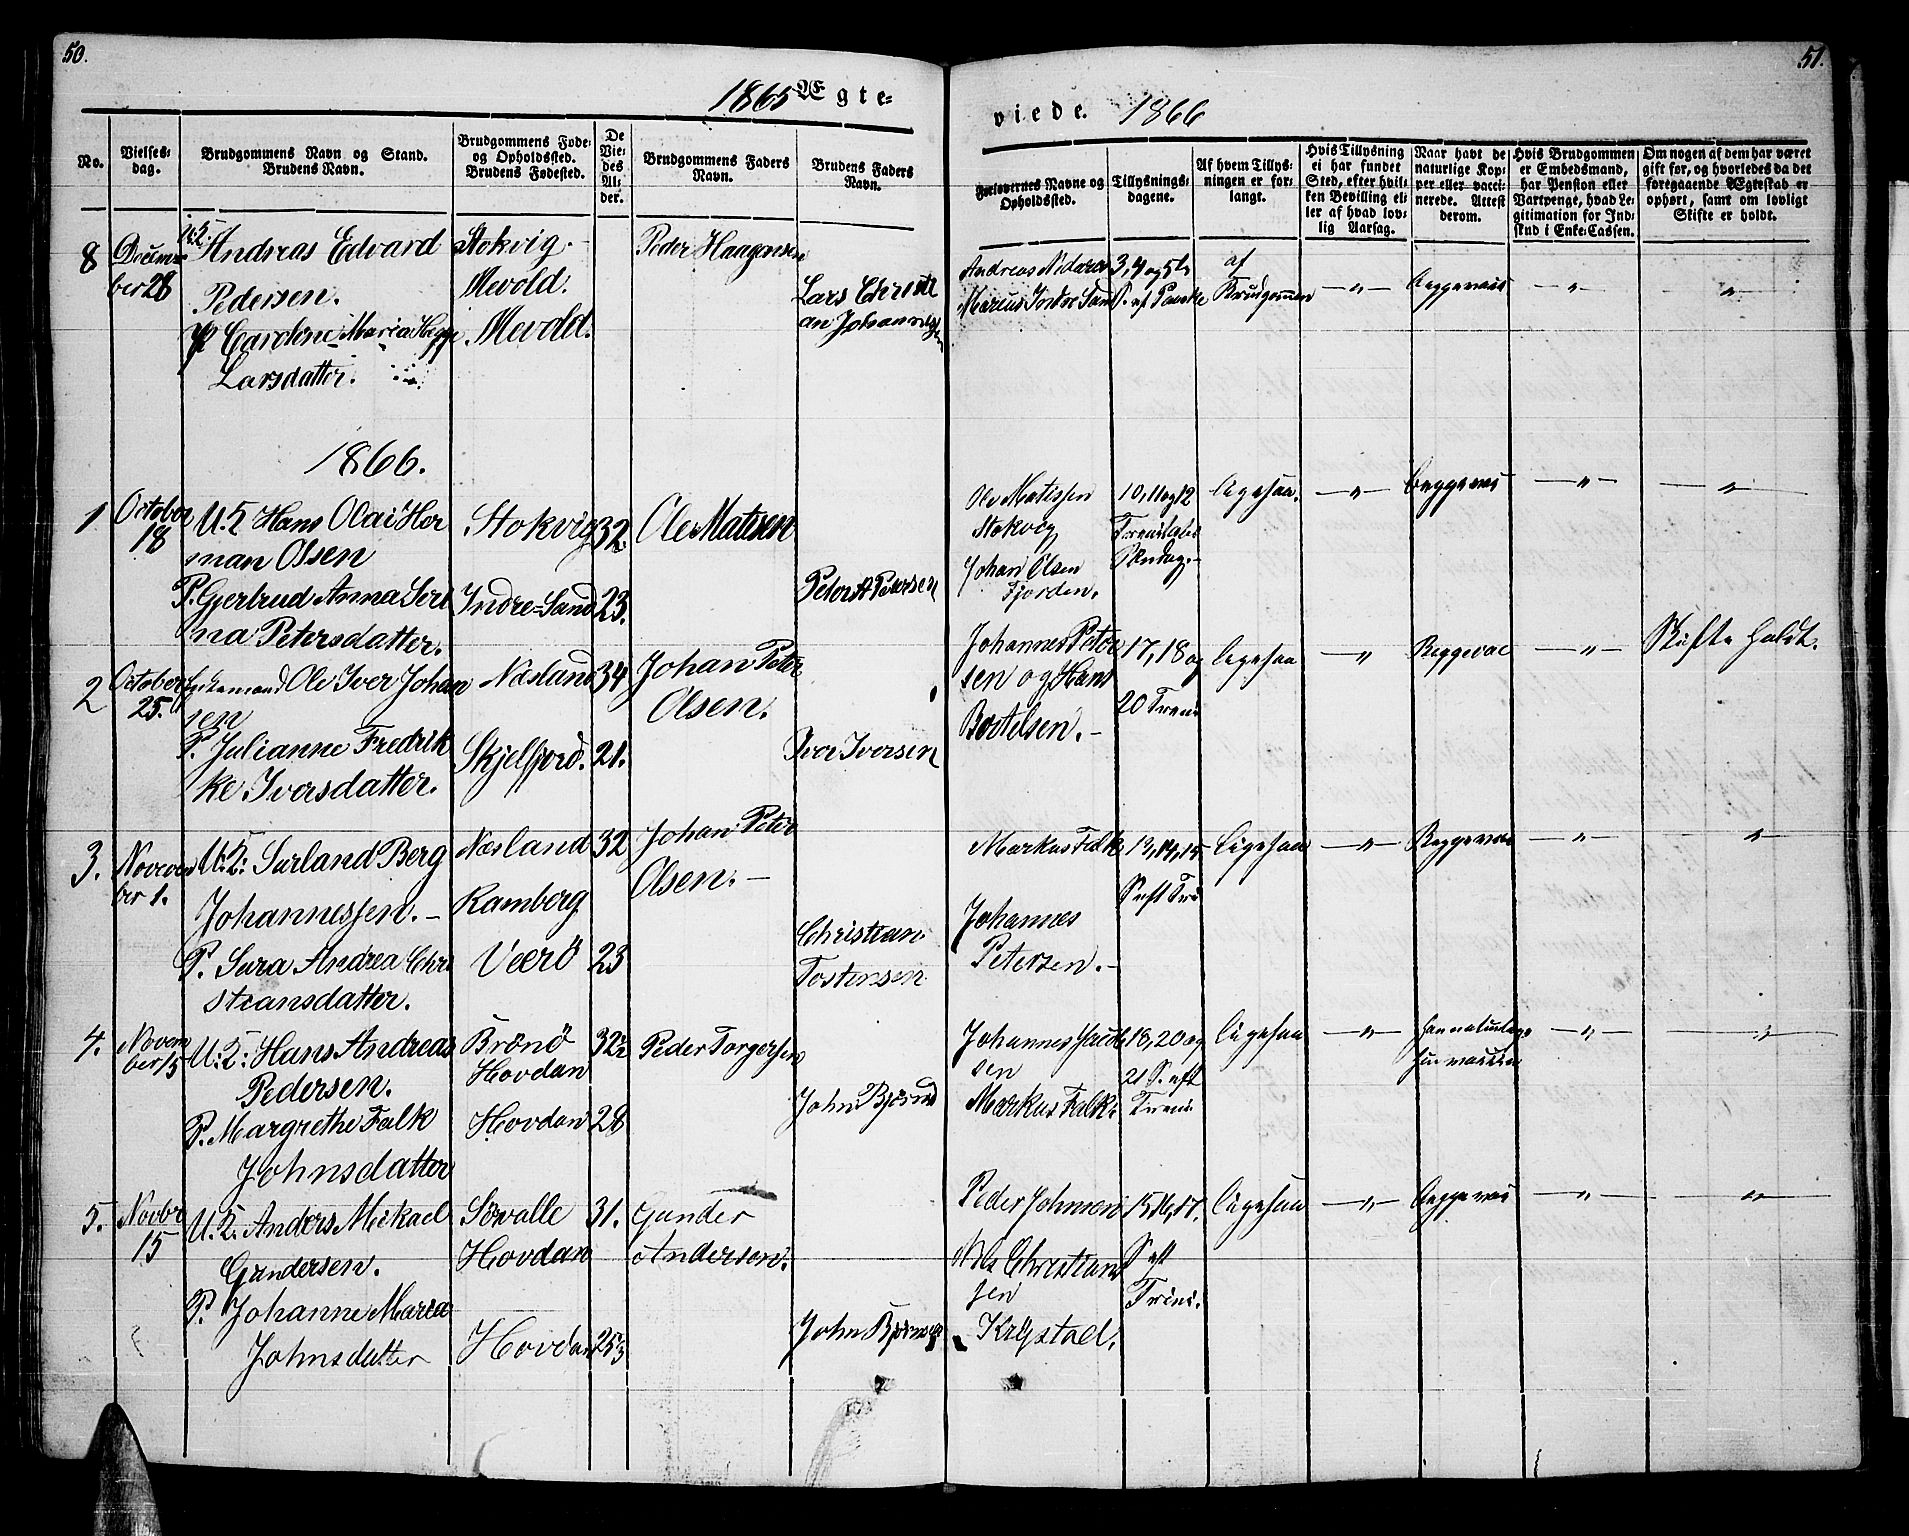 50.
51.
1865 Ægte=
viede. 1866
No.
Vielses-
dag.
Brudgommens Navn og Stand.
Brudens Navn.
Brudgommens Føde-
og Opholdssted.
Brudens Fødested.
De
Vie-
des
Al-
der.
Brudgommens Faders
Navn.
Brudens Faders
Navn.
Forlovernes Navne og
Opholdssted.
Tillysnings-
dagene.
Af hvem Tillys-
ningen er for-
langt.
Hvis Tillysning
ei har fundet
Sted, efter hvil-
ken Bevilling el-
ler af hvad lov-
lig Aarsag.
Naar havt de
naturlige Kop-
per eller vacci-
nerede. Attest
derom.
Hvis Brudgommen
er Embedsmand,
har Pension eller
Vartpenge, hvad Le-
gitimation for Ind-
skud i Enke-Cassen.
Om nogen af dem har været
gift før, og hvorledes da det
foregaaende Ægteskab er
ophørt, samt om lovligt
Skifte er holdt.
8
Decem-
ber 28
Andreas Edvard
Pedersen.
P Caroline Maria
Larsdatter.
Stokvig.
Mevold.
Mevold.
Peder Haagensen
Lars Christi
an Johannessen
Andreas
Marius Indre Sand
3, 4 og 5te
af
Brudgommen
—"—
Begge vac
"
"
1866.
1
October
18
U.K Hans Olai Her
man Olsen
P. Gjertrud Anna Seri
na Petersdatter.
Stokvig
Indre=Sand
32.
23.
Ole Matisen
Peter A Petersen
Ole Matissen
Stokvig
Johan Olsen
Fjorden.
10, 11 og 12
Trinitatis
Søndag.
ligesaa.
—"—
Begge vac
—"—
"
2
October
25.
Enkemand Ole Iver Johan
sen
P. Julianne Fredrik
ke Iversdatter.
Næsland
Skjelfjord.
34
21.
Johan Peter
Olsen.
Iver Iversen
Johannes Peter
sen og Hans
Bostelsen.
17, 18 og
20 Trini
ligesaa
—"—
Begge vac
—"—
Skifte holdt.
3.
Novem
ber 1.
U.K: Surland Berg
Johannessen.
P. Sara Andrea Chri
stiansdatter.
Næsland
Ramberg
Veerö
32
23
Johan Peter
Olsen.
Christian
Tostensen
Markus Falk
Johannes
Petersen.
13, 14, 15
S. eft Tri
ligesaa
—"—
Begge vac
—"—
"
4.
Novem
ber 15
U.K: Hans Andreas
Pedersen.
P. Margrethe Falk
Johnsdatter
Brönö
Hovdan
Hovdan
32½
28
Peder Torgersen
John Björnd
Johannes
sen
Markus Falk
18, 20 og
21 S. eft
Trini
ligesaa
—"—
—"—
"
5.
Novbr
15
U.K. Anders Mickael
Gundersen.
P. Johanne Maria
Johnsdatter
Sörvalle
Hovdan
Hovdan
31.
25
Gunder
Andersen.
John Björnsen
Peder Johnsen
Nils Christian
sen
Krystad.
15, 16, 17.
S eft
Trini.
ligesaa
—"—
Begge vac
—"—
"